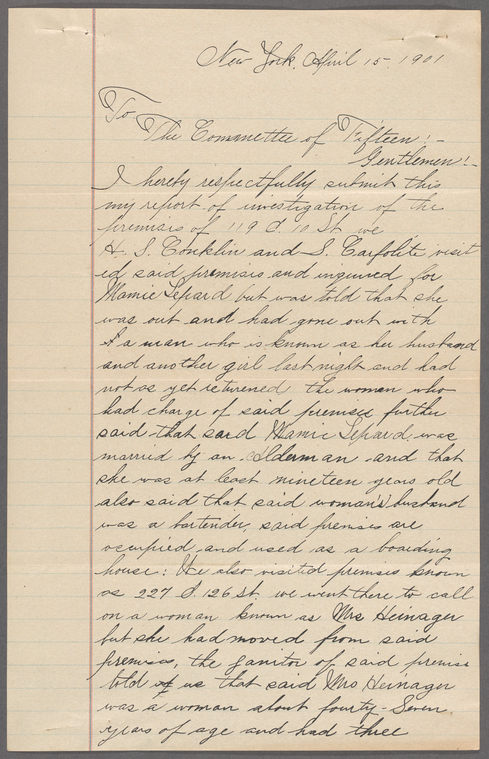 New York. April 15 - 1901
To
The Committee of Fifteen! -
Gentlemen! -
I hereby respectfully submit this
my report of investigation of the
premises of 119 E. 10 St we
H. S. Conklin and S. Carfolite visit
ed said premises and inquired for
Mamie Lepard but was told that she
was out and had gone out with
a man who is known as her husband
and another girl last night and had
not as yet returened the woman who
had charge of said premises further
said that said Mamie Lepard was
married by an Alderman and that
she was at least nineteen years old
also said that said woman's husband
was a bartender, said premises are
occupied and used as a boarding
house: We also visited premises known
as 227 E. 126 St. we went there to call
on a woman known as Mrs Heinager
but she had moved from said
premises, the janitor of said premise
told us that said Mrs Heinager
was a woman about fourty-Seven
years of age and had three